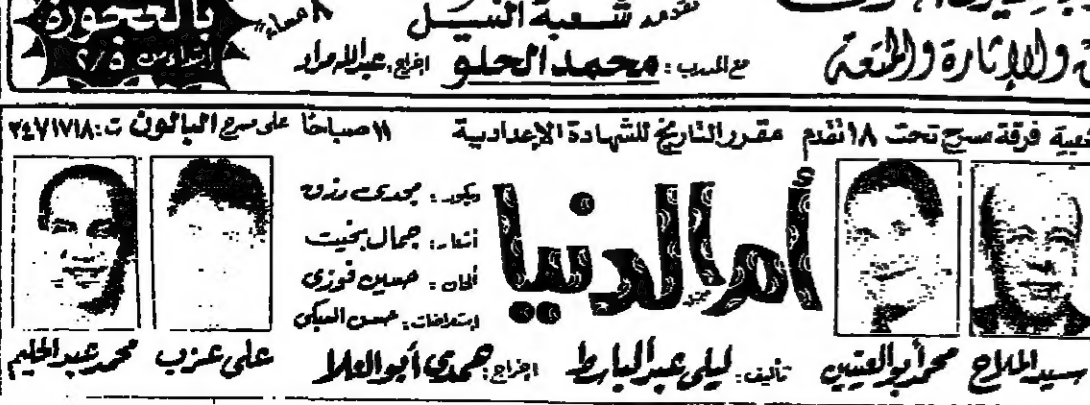 بالعجوزة
ابتداء من ٢/٥
٨ مساءً
تقدم شعبة النيل
مع المدرب: محمد الحلو اخراج: عبدالله مراد
والإثارة والمتعة
فرقة مسرح تحت ١٨ تقدم مقرر التاريخ للشهادة الإعدادية ١١ صباحًا على مسرح البالون ت: ٣٤٧١٧١٨
أم الدنيا
ديكور: مجدى رزق
أشعار: جمال بخيت
ألحان: حسين فوزى
إستعراضات: حسن
سيد الملاح محمد أبو العينين تأليف: ليلى عبد الباسط اخراج: حمدى أبو العلا على عزب محمد عبد الحليم